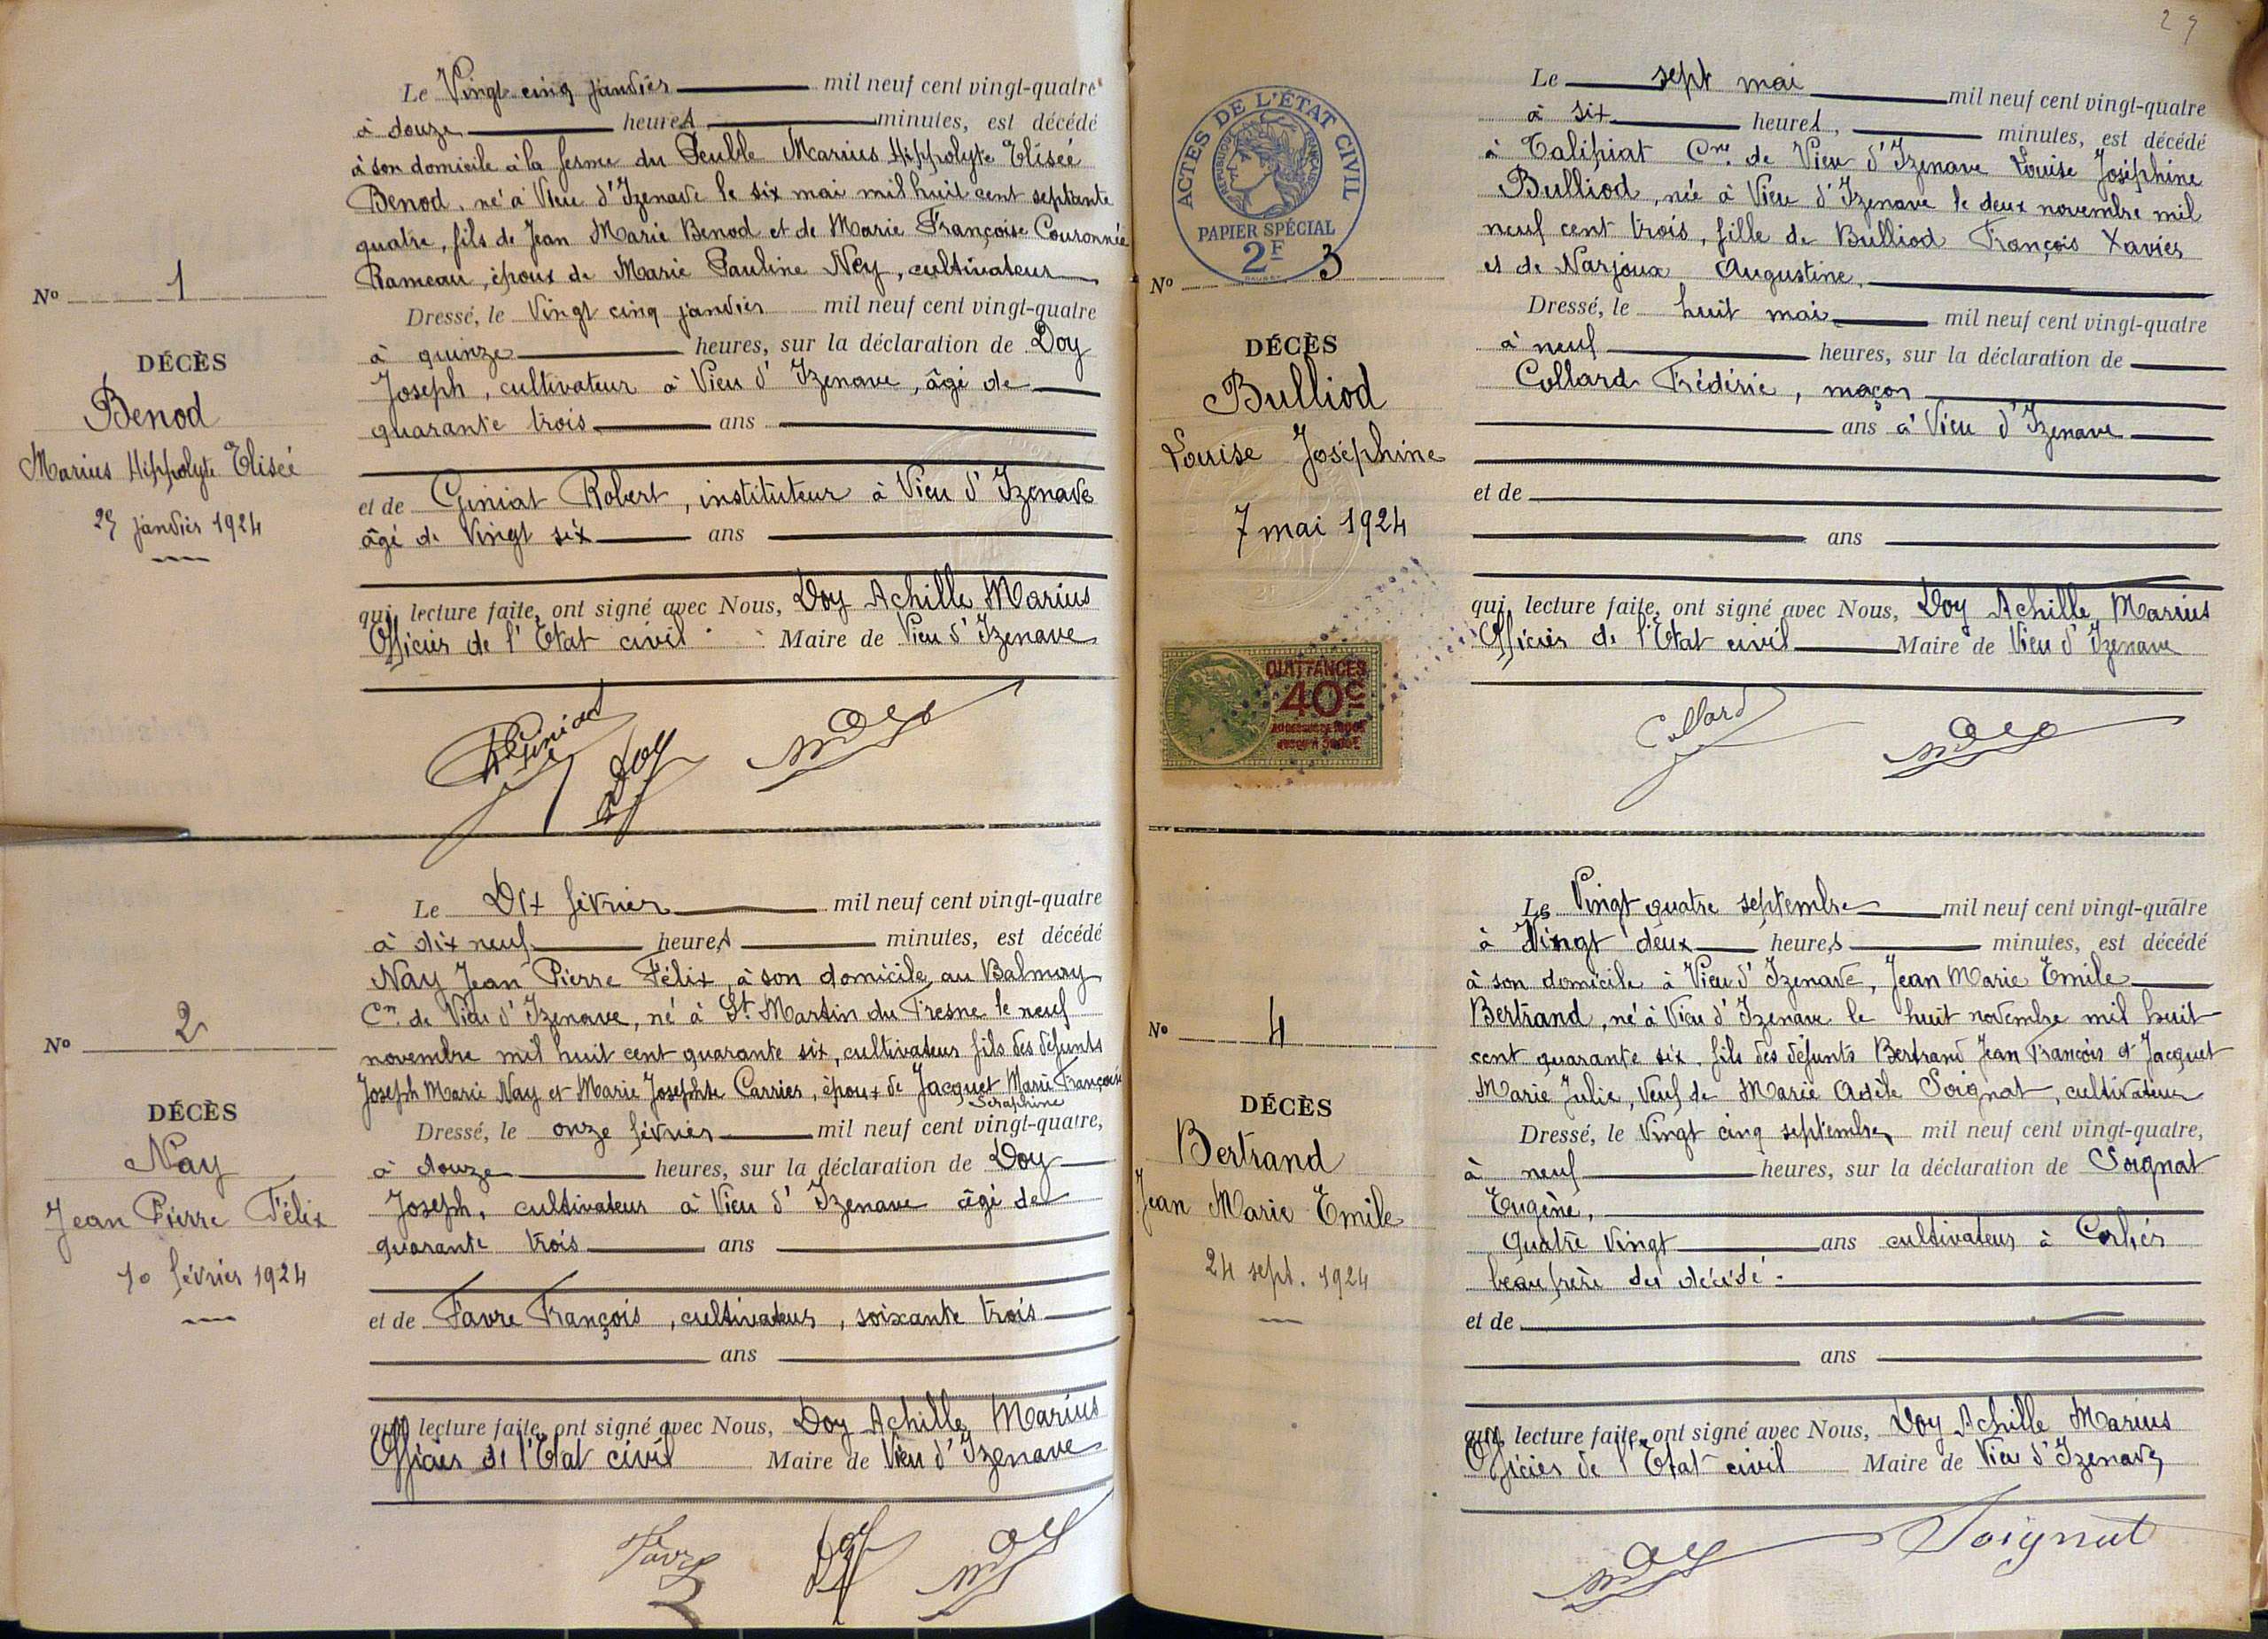 Le Vingt cinq janvier mil neuf cent vingt-quatre
à douze heures minutes, est décédé
à son domicile à la ferme du Peuble Marius Hippolyte Eliseé
Benod, né à Vieu d'Izenave le six mai mil huit cent septante
quatre, fils de Jean Marie Benod et de Marie Françoise Couronnée
Rameau, époux de Marie Pauline Ney, cultivateur
Nº 1
Dressé, le Vingt cinq janvier mil neuf cent vingt-quatre
à quinze heures, sur la déclaration de Doy
DÉCÈS
Joseph, cultivateur à Vieu d'Izenave, âgé de
Benod
quarante trois ans
Marius Hippolyte Eliseé
et de Giniat Robert, instituteur à Vieu d'Izenave
25 janvier 1924
âgé de Vingt six ans
qui, lecture faite, ont signé avec Nous, Doy Achille Marius
Officier de l'Etat civil Maire de Vieu d'Izenave
Doy
Le Dix février mil neuf cent vingt-quatre
à dix neuf heures minutes, est décédé
Nay Jean Pierre Félix, à son domicile au Balmay
Cne de Vieu d'Izenave, né à St Martin du Fresne le neuf
Nº 2
novembre mil huit cent quarante six, cultivateur fils des défunts
Joseph Marie Nay et Marie Josephte Carrier, époux de Jacquet Marie Françoise
Séraphine
DÉCÈS
Dressé, le onze février mil neuf cent vingt-quatre,
Nay
à douze heures, sur la déclaration de Doy
Jean Pierre Félix
Joseph, cultivateur à Vieu d'Izenave âgé de
quarante trois ans
10 février 1924
et de Favre François, cultivateur, soixante trois
ans
qui, lecture faite, ont signé avec Nous, Doy Achille Marius
Officier de l'Etat civil Maire de Vieu d'Izenave
Favre
Doy
29
ACTES DE L'ÉTAT CIVIL
RÉPUBLIQUE FRANÇAISE
PAPIER SPÉCIAL
2F
Le sept mai mil neuf cent vingt-quatre
à six heures, minutes, est décédé
à Talipiat Cne de Vieu d'Izenave Louise Joséphine
Bulliod, née à Vieu d'Izenave le deux novembre mil
neuf cent trois, fille de Bulliod François Xavier
et de Narjoux Augustine,
Nº 3
Dressé, le huit mai mil neuf cent vingt-quatre
DÉCÈS
à neuf heures, sur la déclaration de
Bulliod
Collard Frédéric, maçon
ans à Vieu d'Izenave
Louise Joséphine
et de
7 mai 1924
ans
qui, lecture faite, ont signé avec Nous, Doy Achille Marius
Officier de l'Etat civil Maire de Vieu d'Izenave
QUITTANCES
40c
Collard
Le Vingt quatre septembre mil neuf cent vingt-quatre
à Vingt deux heures minutes, est décédé
à son domicile à Vieu d'Izenave, Jean Marie Emile
Bertrand, né à Vieu d'Izenave le huit novembre mil huit
Nº 4
cent quarante six, fils des défunts Bertrand Jean François et Jacquet
Marie Julie, Veuf de Marie Adèle Soignat, cultivateur
DÉCÈS
Dressé, le Vingt cinq septembre mil neuf cent vingt-quatre,
Bertrand
à neuf heures, sur la déclaration de Soignat
Jean Marie Emile
Eugène,
Quatre Vingt ans cultivateur à
24 sept. 1924
beau frère du décédé.
et de
ans
qui, lecture faite, ont signé avec Nous, Doy Achille Marius
Officier de l'Etat civil Maire de Vieu d'Izenave
Soignat